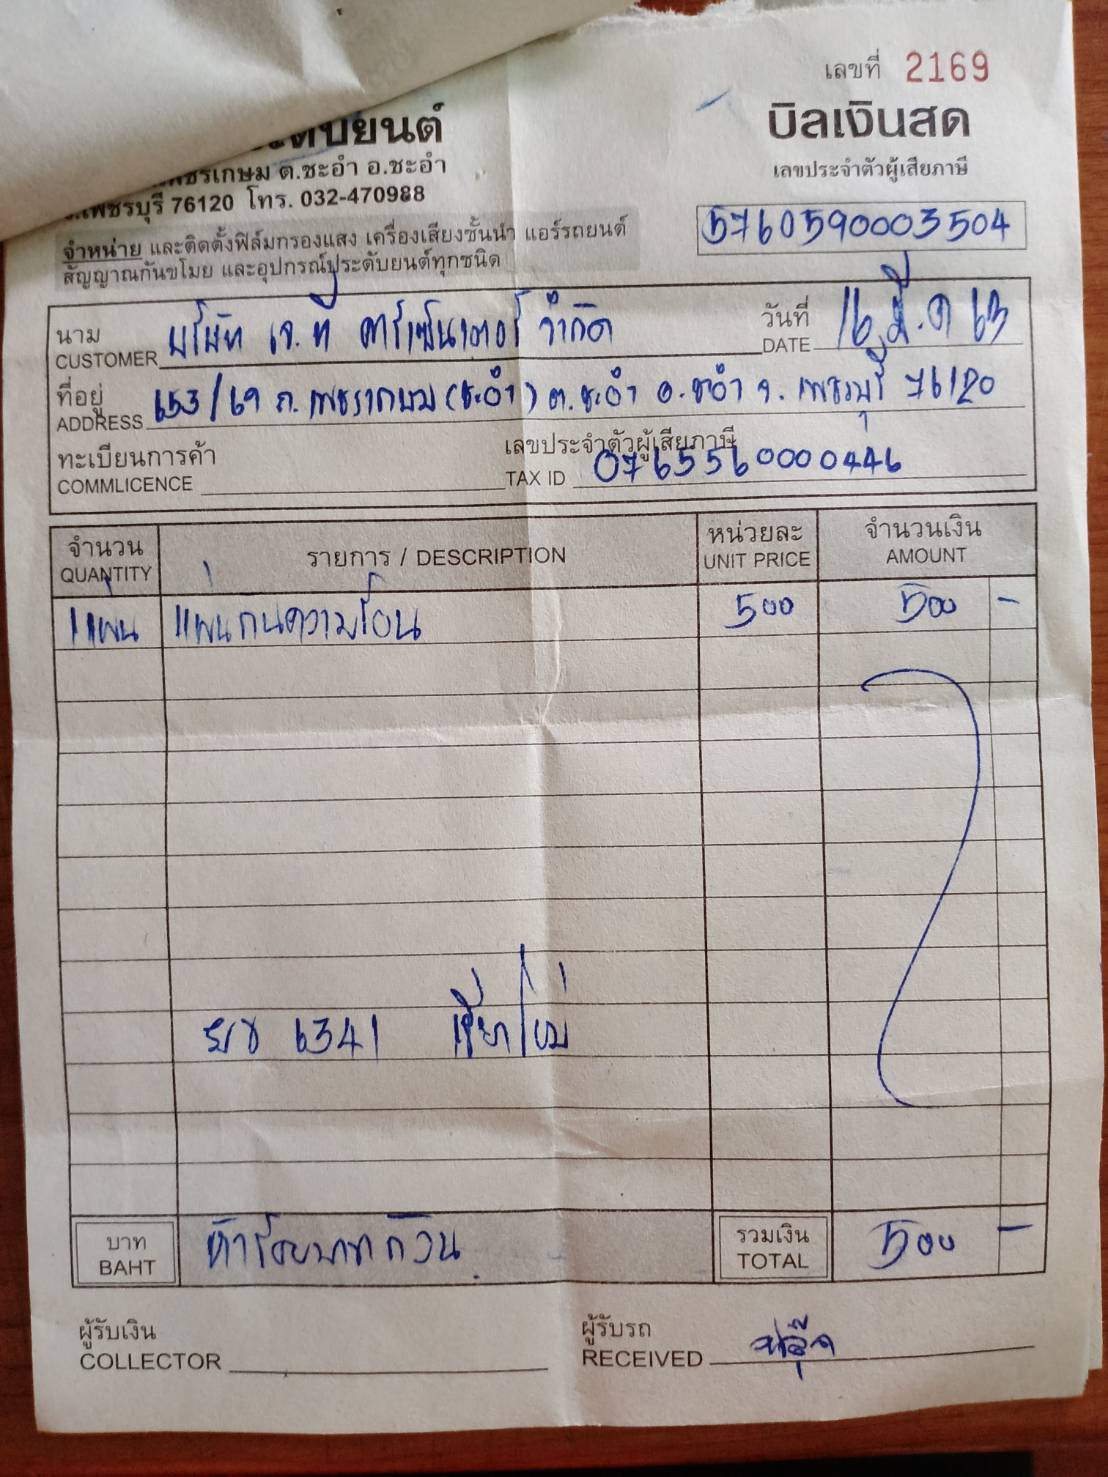 เลขที่ 2169
บิลเงินสด
เลขประจำตัวผู้เสียภาษี
5760590003504
ะดับยนต์
เพชรเกษม ต.ชะอำ อ.ชะอำ
จ.เพชรบุรี 76120 โทร. 032-470988
จำหน่าย และติดตั้งฟิล์มกรองแสง เครื่องเสียงชั้นนำ แอร์รถยนต์
สัญญาณกันขโมย และอุปกรณ์ประดับยนต์ทุกชนิด
นาม บริษัท เจ.ที คาร์เซ็นเตอร์ จำกัด วันที่ 16 มี.ค 63
CUSTOMER DATE
ที่อยู่ 653/69 ถ.เพชรเกษม (ชะอำ) ต.ชะอำ อ.ชะอำ จ.เพชรบุรี 76120
ADDRESS
ทะเบียนการค้า เลขประจำตัวผู้เสียภาษี
COMMLICENCE TAX ID 0765560000446
จำนวน รายการ / DESCRIPTION หน่วยละ จำนวนเงิน
QUANTITY UNIT PRICE AMOUNT
1 แผ่น แผ่นกันความร้อน 500 500 -
6341
บาท ห้าร้อยบาทถ้วน รวมเงิน 500 -
BAHT TOTAL
ผู้รับเงิน ผู้รับรถ
COLLECTOR RECEIVED